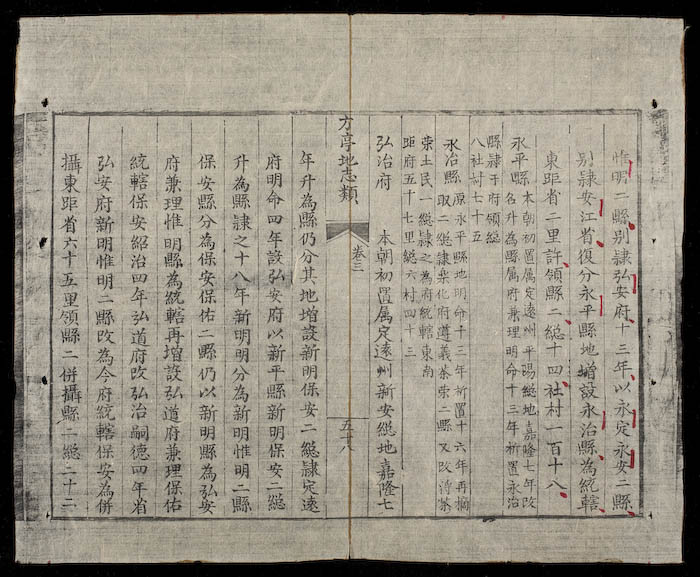 惟明二縣别隸弘安府十三年以永定永安二縣
别隸安江省復分永平縣地增設永治縣為統轄
東距省二里許領縣二總十四社村一百十八
永平縣 本朝初置属定遠州平陽總地嘉隆七年改
名升為縣属府兼理明命十三年析置永治
縣隸于府領總
八社村七十五
永治縣 原永平縣地明命十三年析置十六年再摘
取二總隸樂化府遵義茶榮二縣又改
榮土民一總隸之為府統轄東南
距府五十七里總六村四十三
弘治府 本朝初置属定遠州新安總地嘉隆七
方亭地志類 卷三 五十八
年升為縣仍分其地增設新明保安二總隸定遠
府明命四年設弘安府以新平縣新明保安二總
升為縣隸之十八年新明明分為新明惟明二縣
保安縣分為保安保佑二縣仍以新明縣為弘安
府兼理惟明縣為統轄再增設弘道府兼理保佑
統轄保安紹治四年弘道府改弘治嗣德四年省
弘安府新明惟明二縣改為今府統轄保安為併
攝東距省六十五里領縣二併攝縣一總二十二